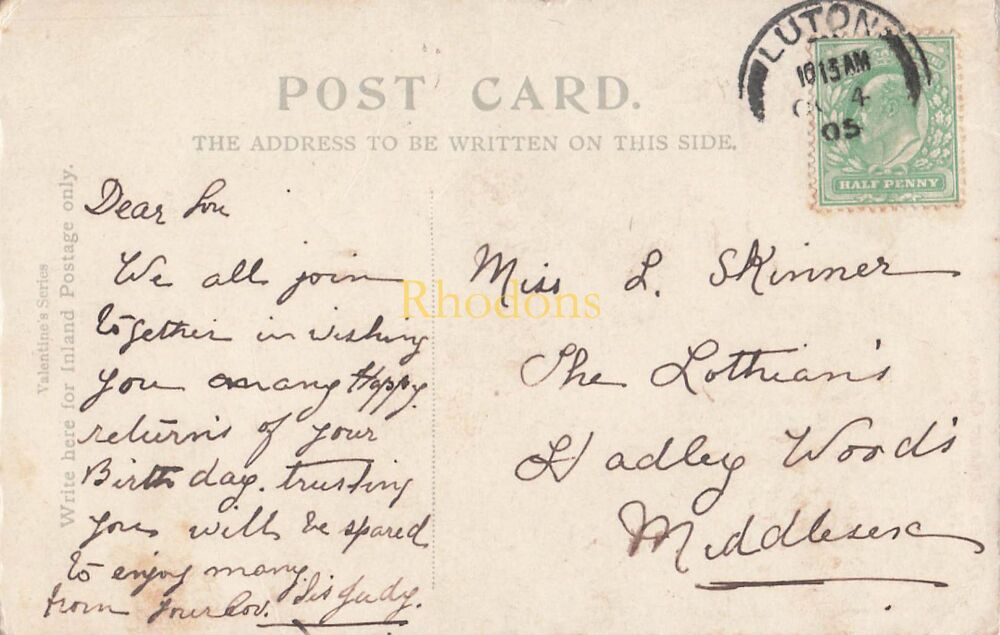 POST CARD.
THE ADDRESS TO BE WRITTEN ON THIS SIDE.
Valentine's Series
Write here for Inland Postage only.
LUTON
10 15 AM
OC 4
05
HALF PENNY
Dear Lou
We all join
together in wishing
you many Happy
returns of your
Birthday. trusting
you will be spared
to enjoy many
from your lov. Sis Judy.
Miss L. Skinner
The Lothian's
Hadley Wood's
Middlesex
Rhodons